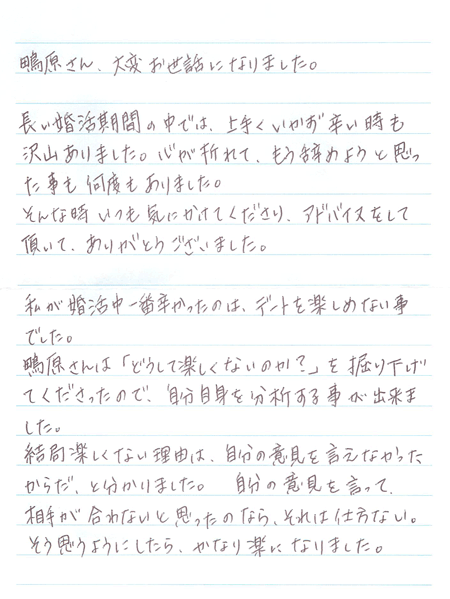 鴨原さん、大変お世話になりました。
長い婚活期間の中では、上手くいかず辛い時も
沢山ありました。心が折れて、もう辞めようと思っ
た事も何度もありました。
そんな時いつも気にかけてくださり、アドバイスをして
頂いて、ありがとうございました。
私が婚活中一番辛かったのは、デートを楽しめない事
でした。
鴨原さんは「どうして楽しくないのか?」を掘り下げ
てくださったので、自分自身を分析する事が出来ま
した。
結局楽しくない理由は、自分の意見を言えなかった
からだ、と分かりました。 自分の意見を言って、
相手が合わないと思ったのなら、それは仕方ない。
そう思うようにしたら、かなり楽になりました。